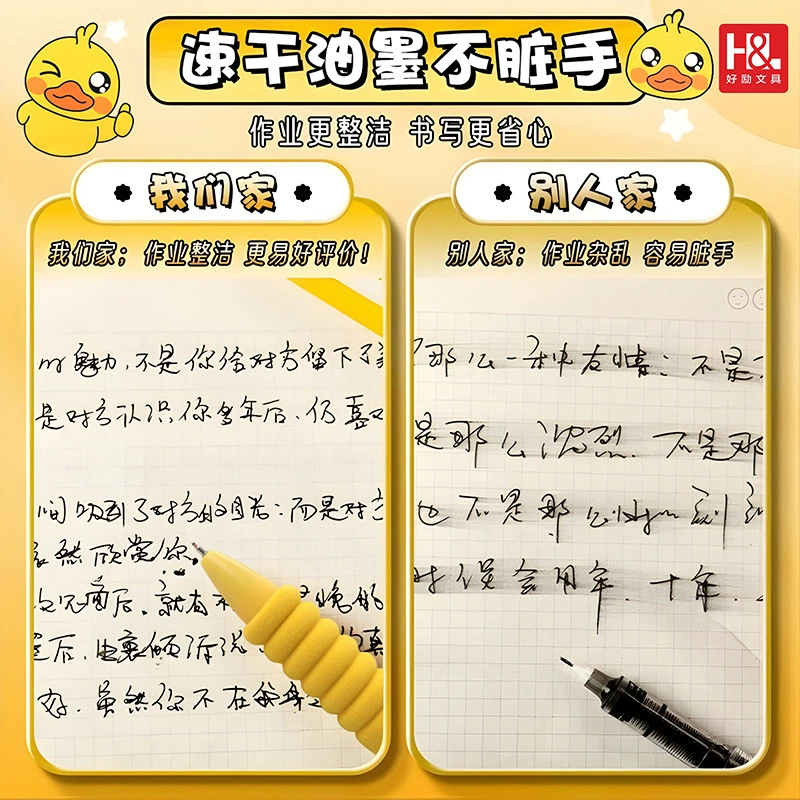 速干油墨不脏手
H&
好励文具
作业更整洁 书写更省心
我们家
我们家；作业整洁 更易好评价！
的魅力，不是你给对方留下了
是对方认识你多年后、仍喜
间吸到了对方的目光：而是对方
然欣赏你。
后，就有
后，
好，虽然你不在
别人家
别人家；作业杂乱 容易脏手
那么一种友情：不是
是那么浓烈．不是那
也不是那么 刻
时误会用年．十年．